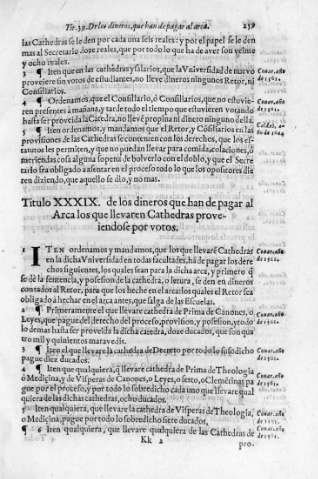 Tit. 39. De los dineros, que han de pagar al arca. 259
las Cathedras se le den por cada una seis reales: y por el papel se le den
mas al Secretario doze reales, que por todo lo que ha de aver son veinte
y ocho reales.
3 ¶ Iten que en las cathedras y silortes, que la Universidad de nuevo
proveiere sin votos de estudiantes, no lleve dineros ningunos Retor, ni
Consiliarios.
4 ¶ Ordenamos, que el Consiliario, ó Consiliarios, que no estuvie-
ren presentes à mañana, y tarde todo el tiempo que estuvieren votando
hasta ser proveida la Catedra, no llevē propina ni dinero ninguno della.
5 ¶ Iten ordenamos, y mandamos que el Retor, y Cōsiliarios en las
provisiones de las Cathedras se contenten con los derechos, que los es-
tatutos les permiten, y que no puedan llevar para comida, colaciones, ò
meriendas cosa alguna sopena de bolverlo con el doblo, y que el Secre
tario sea obligado a assentar en el processo todo lo que los opositores die
ren diziendo, que aquello se dio, y no mas.
Titulo XXXIX. de los dineros que han de pagar al
Arca los que llevaren Cathedras prove-
iendose por votos.
1 ¶ ITEN ordenamos y mandamos, que los que llevarē Cathedras
en la dicha Vniversidad en todas facultades, hā de pagar los dere
chos siguientes, los quales sean para la dicha arca, y primero q̄
se dè la sentencia, y possession de la cathedra, o letura, se den en dineros
contados al Retor, para que los heche en el arca: los quales el Retor sea
obligado à hechar en el arca antes, que salga de las Escuelas.
2 ¶ Primeramente el que llevare cathedra de Prima de Canones, o
Leyes, que pague del derecho del processo, provision, y possession, y todo
lo demas hasta ser proveida la dicha catedra, doze ducados, que son qua
tro mil y quinientos maravedis.
3 ¶ Iten el que llevare la cathedra de Decreto por todo lo susodicho
pague diez ducados.
4 ¶ Iten que qualquiera, q̄ llevare cathedra de Prima de Theologia
ò Medicina, y de Visperas de Canones, o Leyes, o sexto, o Clemētinas pa
gue por el processo, y por todo lo sobredicho cada uno que llevare qual
quiera de las dichas cathedras, ocho ducados.
5 Iten qualquiera, que llevare la cathedra de Visperas de Theologia,
o Medicina, pague por todo lo sobredicho siete ducados.
6 ¶ Iten qualquiera, que llevare qualquiera de las Cathedras de
Kk 2 pro.